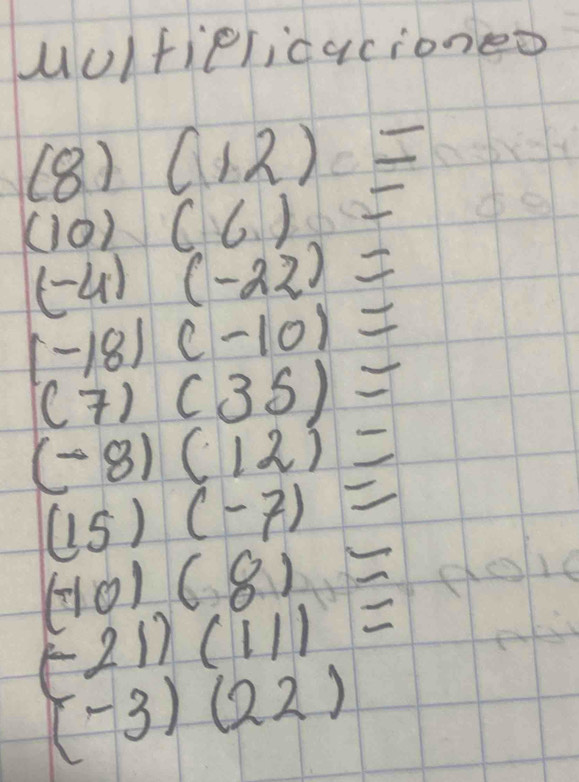 Multiplicaciones
(8) (12) =
(10) (6) =
(-4) (-22) =
(-18) (-10) =
(7) (35) =
(-8) (12) =
(15) (-7) =
(-10) (8) =
(-21) (11) =
(-3) (22)